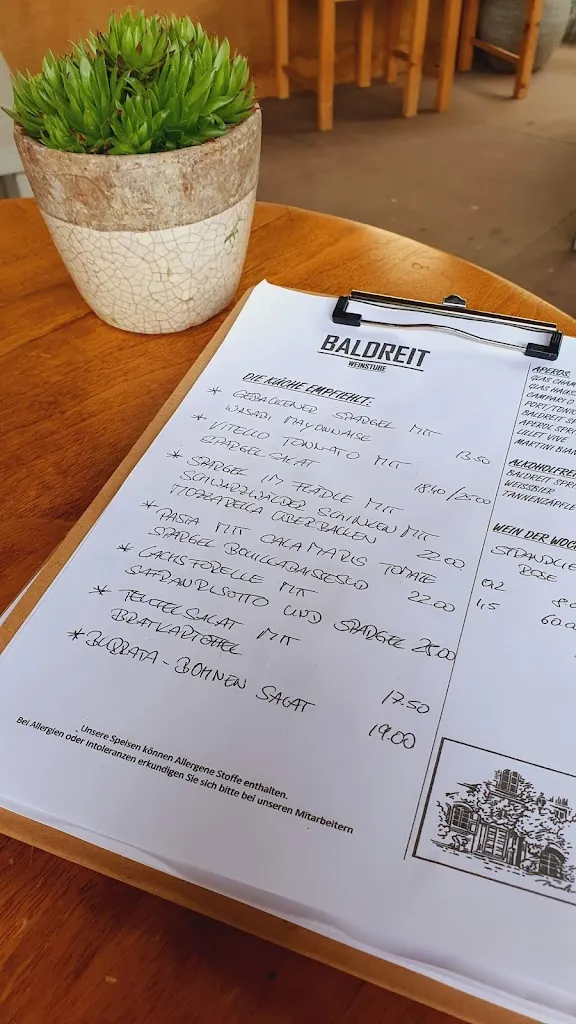 BALDREIT
WEINSTUBE
DIE KÜCHE EMPFIEHLT:
* GEBACKENER SPARGEL MIT
WASABI MAYONNAISE 13.50
* VITELLO TONNATO MIT
SPARGELSALAT 18.40/25.00
* SPARGEL IM FLÄDLE MIT
SCHWARZWÄLDER SCHINKEN MIT
MOZZARELLA ÜBERBACKEN 22.00
* PASTA MIT CALAMARIS TOMATE
SPARGEL BOUILLABAISSESUD 22.00
* LACHSFORELLE MIT
SAFRANRISOTTO UND SPARGEL 25.00
* TEUFELSALAT MIT
BRATKARTOFFEL 17.50
* BURRATA-BOHNEN SALAT 19.00
Unsere Speisen können Allergene Stoffe enthalten.
Bei Allergien oder Intoleranzen erkundigen Sie sich bitte bei unseren Mitarbeitern
APEROS
GLAS CHAM
GLAS HAUS
CAMPARI O
PORT/TONIC
BALDREIT SP
APEROL SPRI
LILLET VIVE
MARTINI BIAN
ALKOHOLFREI
BALDREIT SPR
WEISSBIER
TANNENZÄPFLE
WEIN DER WOCH
ROSE
0,2 8.0
1,5 60.0